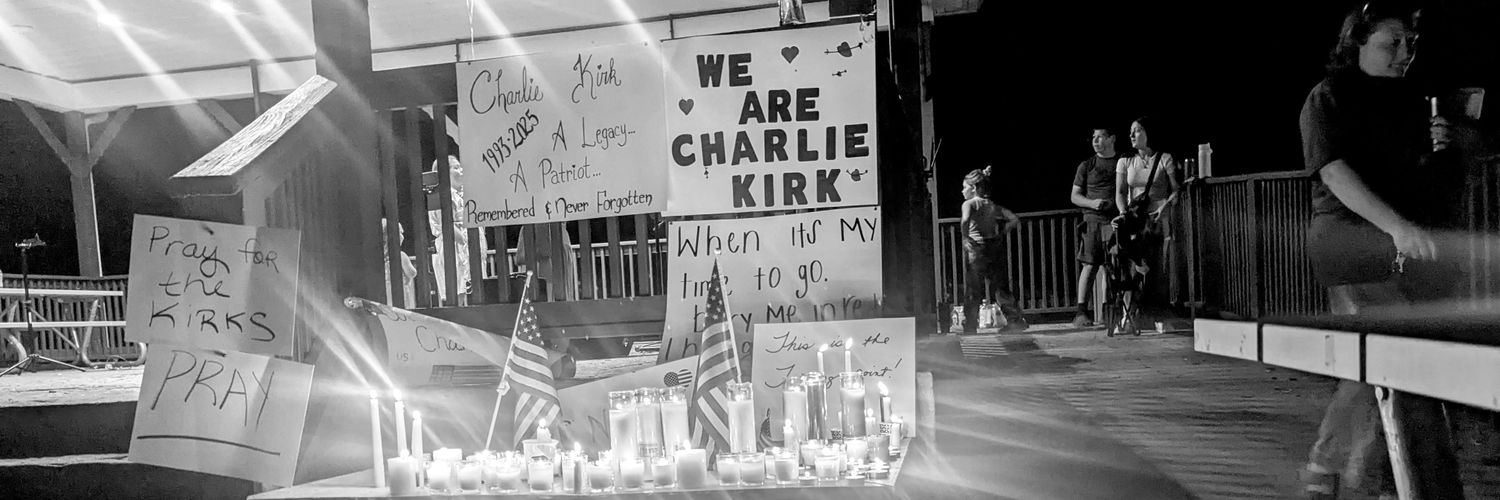 Charlie Kirk
1993-2025
A Legacy...
A Patriot...
Remembered & Never Forgotten
WE
ARE
CHARLIE
KIRK
Pray for
the
KIRKS
PRAY
When its My
time to go.
bury Me in
This is the
Cha
US